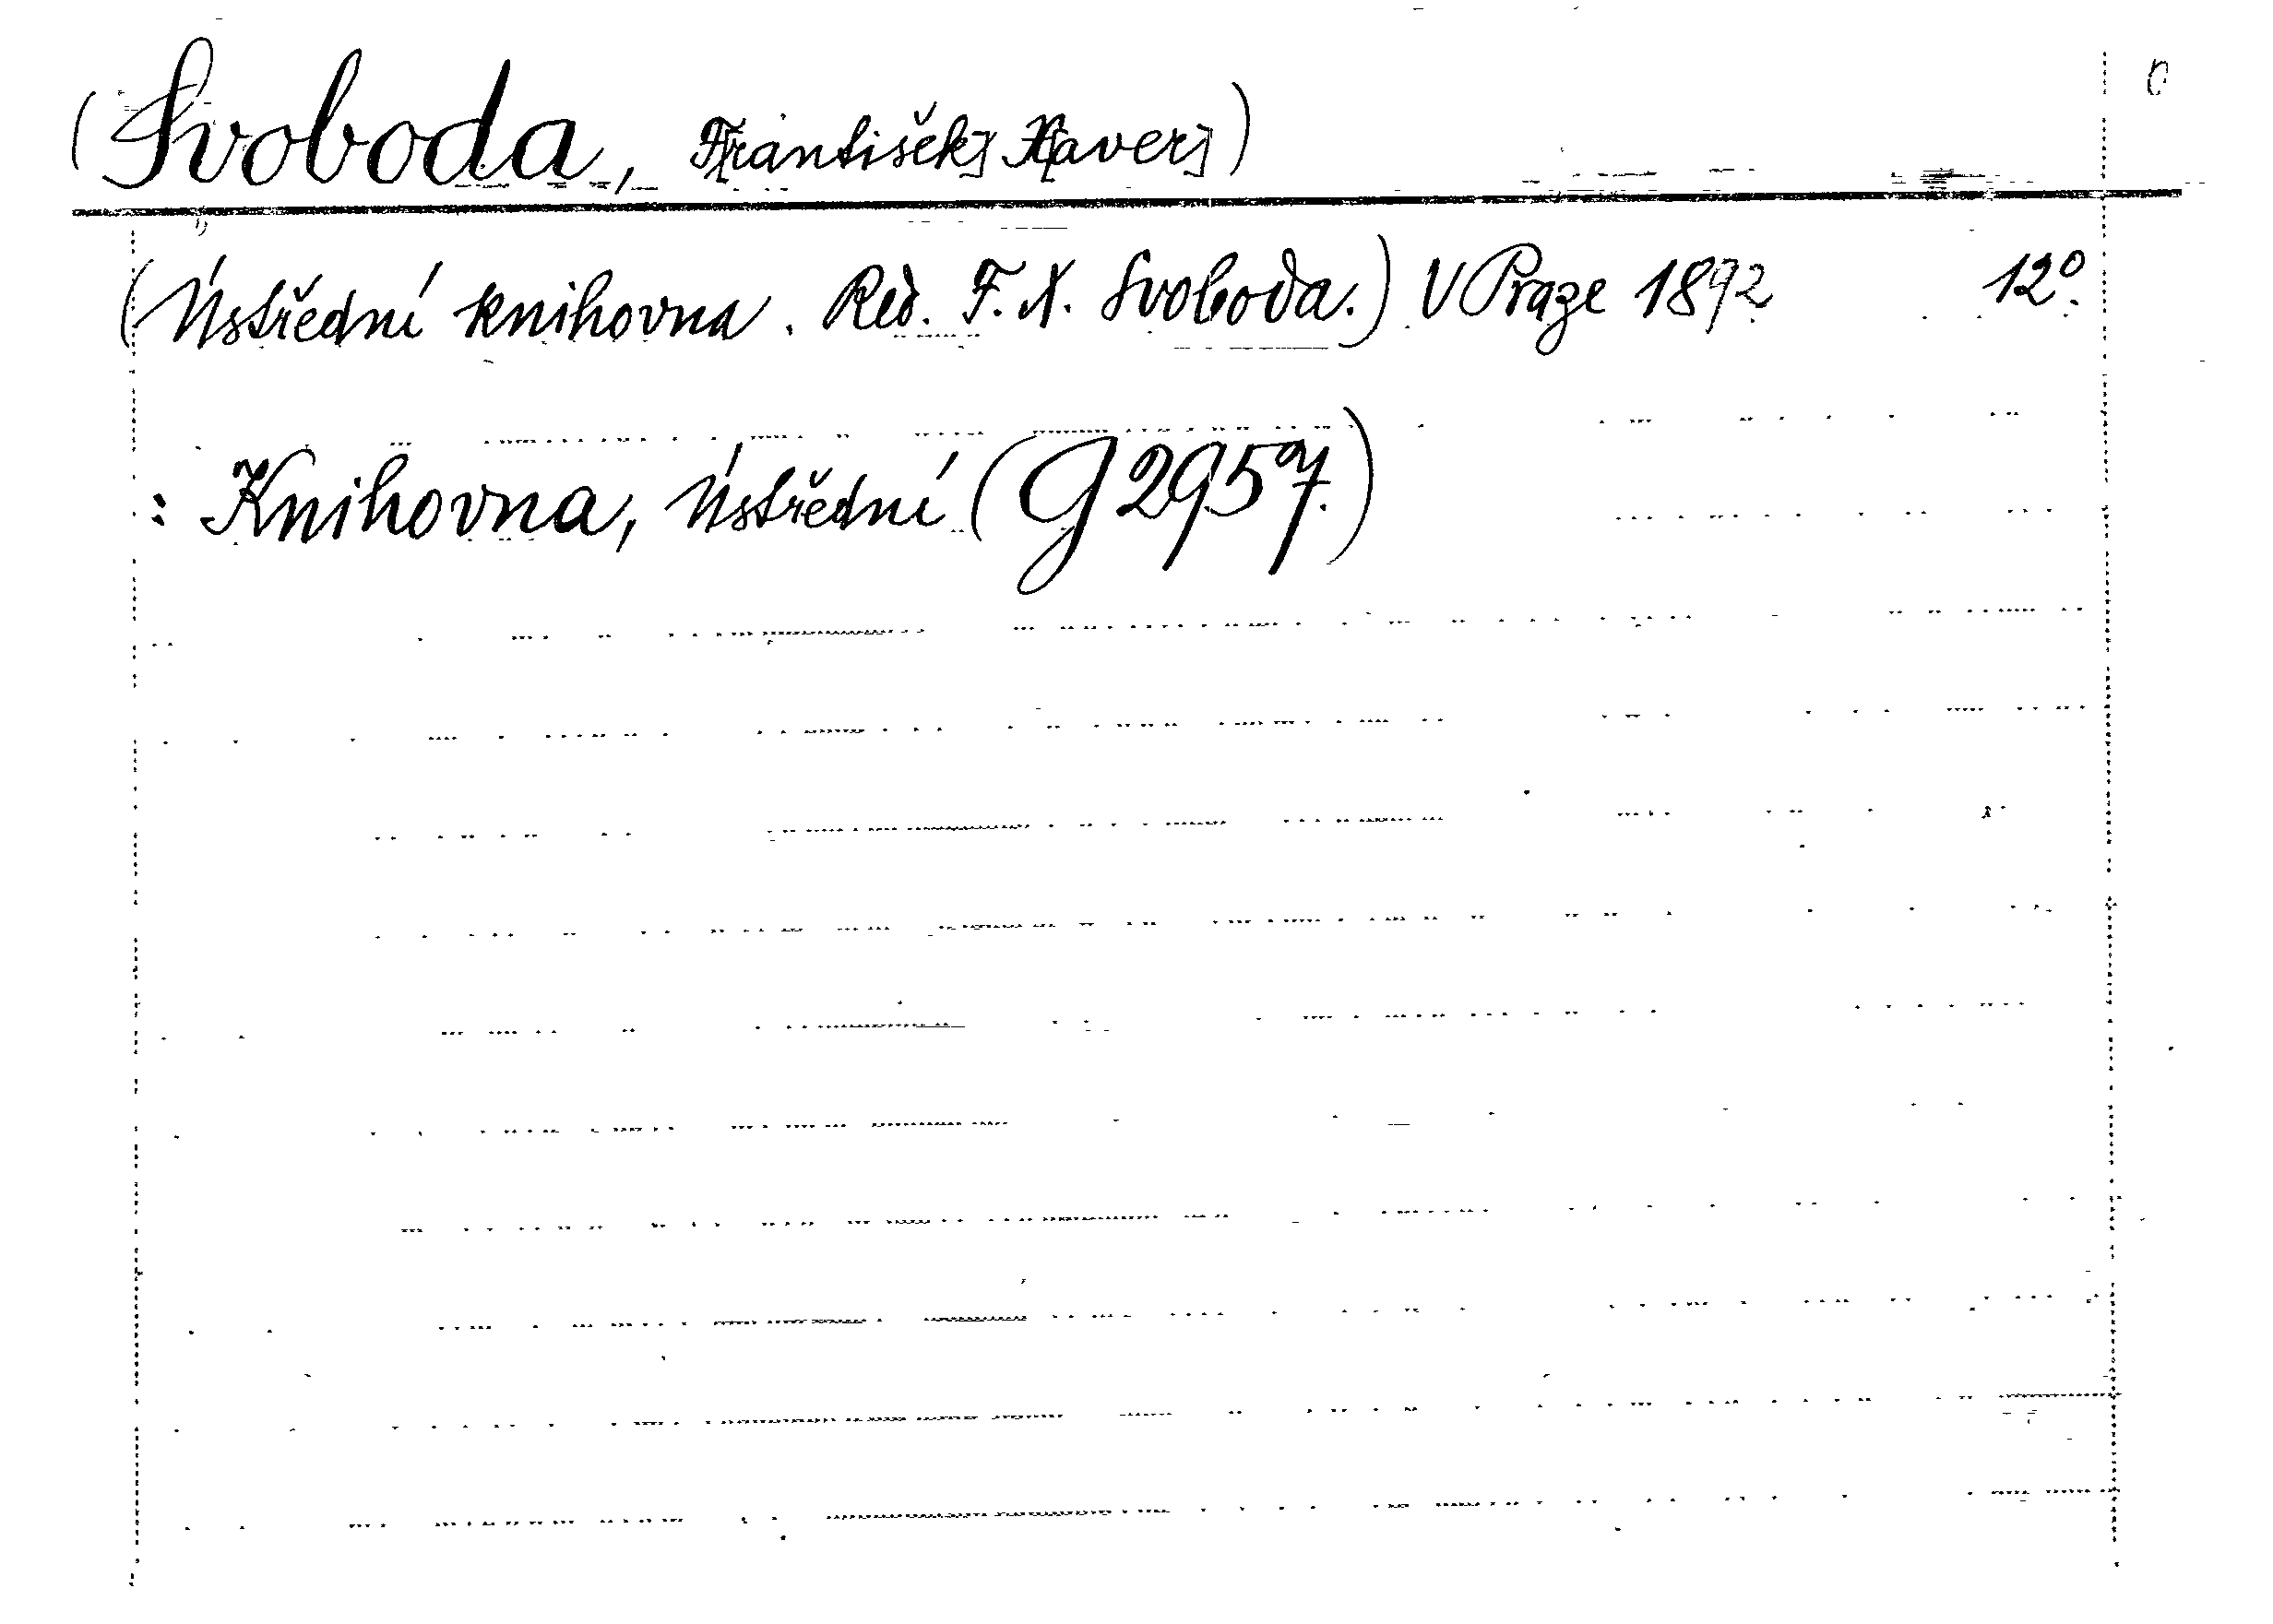 (Svoboda, F[rantišek] X[aver])
(Ústřední knihovna. Red. F. X. Svoboda.) V Praze 1892 12°.
: Knihovna, Ústřední (G 2957.)